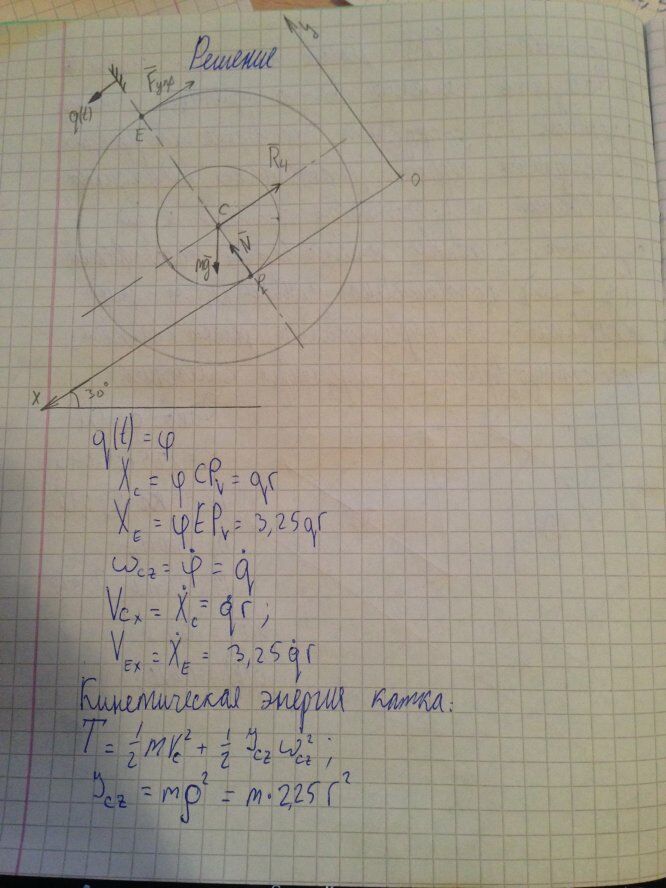 Решение
y
F̅упр
q(t)
E
R̅ч
O
C
N̅
mg̅
Pv
X
30°
q(t) = φ
Xc = φ CPv = qr
XE = φ EPv = 3,25qr
ωcz = φ̇ = q̇
Vcx = Ẋc = q̇r;
VEx = ẊE = 3,25q̇r
Кинетическая энергия катка:
T = 1/2 mVc² + 1/2 Jcz ωcz²;
Jcz = mρ² = m·2,25r²